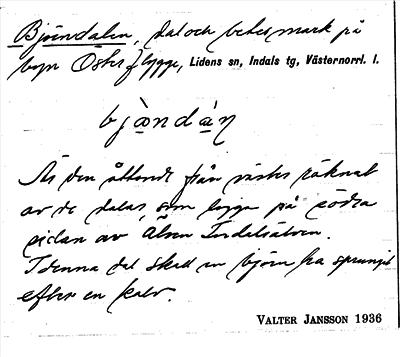 Björndalen, dal och betesmark på
byn Österflygge, Lidens sn, Indals tg, Västernorrl. l.
bjὰndὰn
Är den åttonde från väster räknat
av de dalar, som ligga på södra
sidan av älven Indalsälven.
I denna dal skall en björn ha sprungit
efter en kalv.
VALTER JANSSON 1936